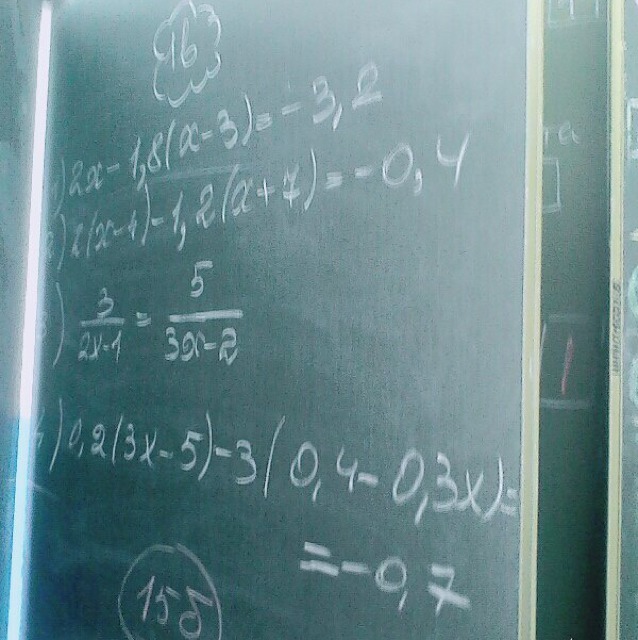 1б
) 2x - 1,8(x-3) = -3,2
) 2(x-4) - 1,2(x+7) = -0,4
) 3/(2x-1) = 5/(3x-2)
) 0,2(3x-5) - 3(0,4 - 0,3x) =
= -0,7
15б